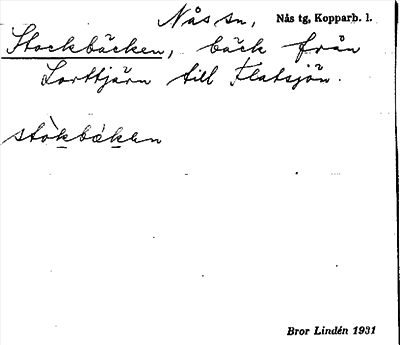 Nås sn, Nås tg, Kopparb. l.
Stockbäcken, bäck från
Lorttjärn till Flatsjön.
stòkbäkən
Bror Lindén 1931